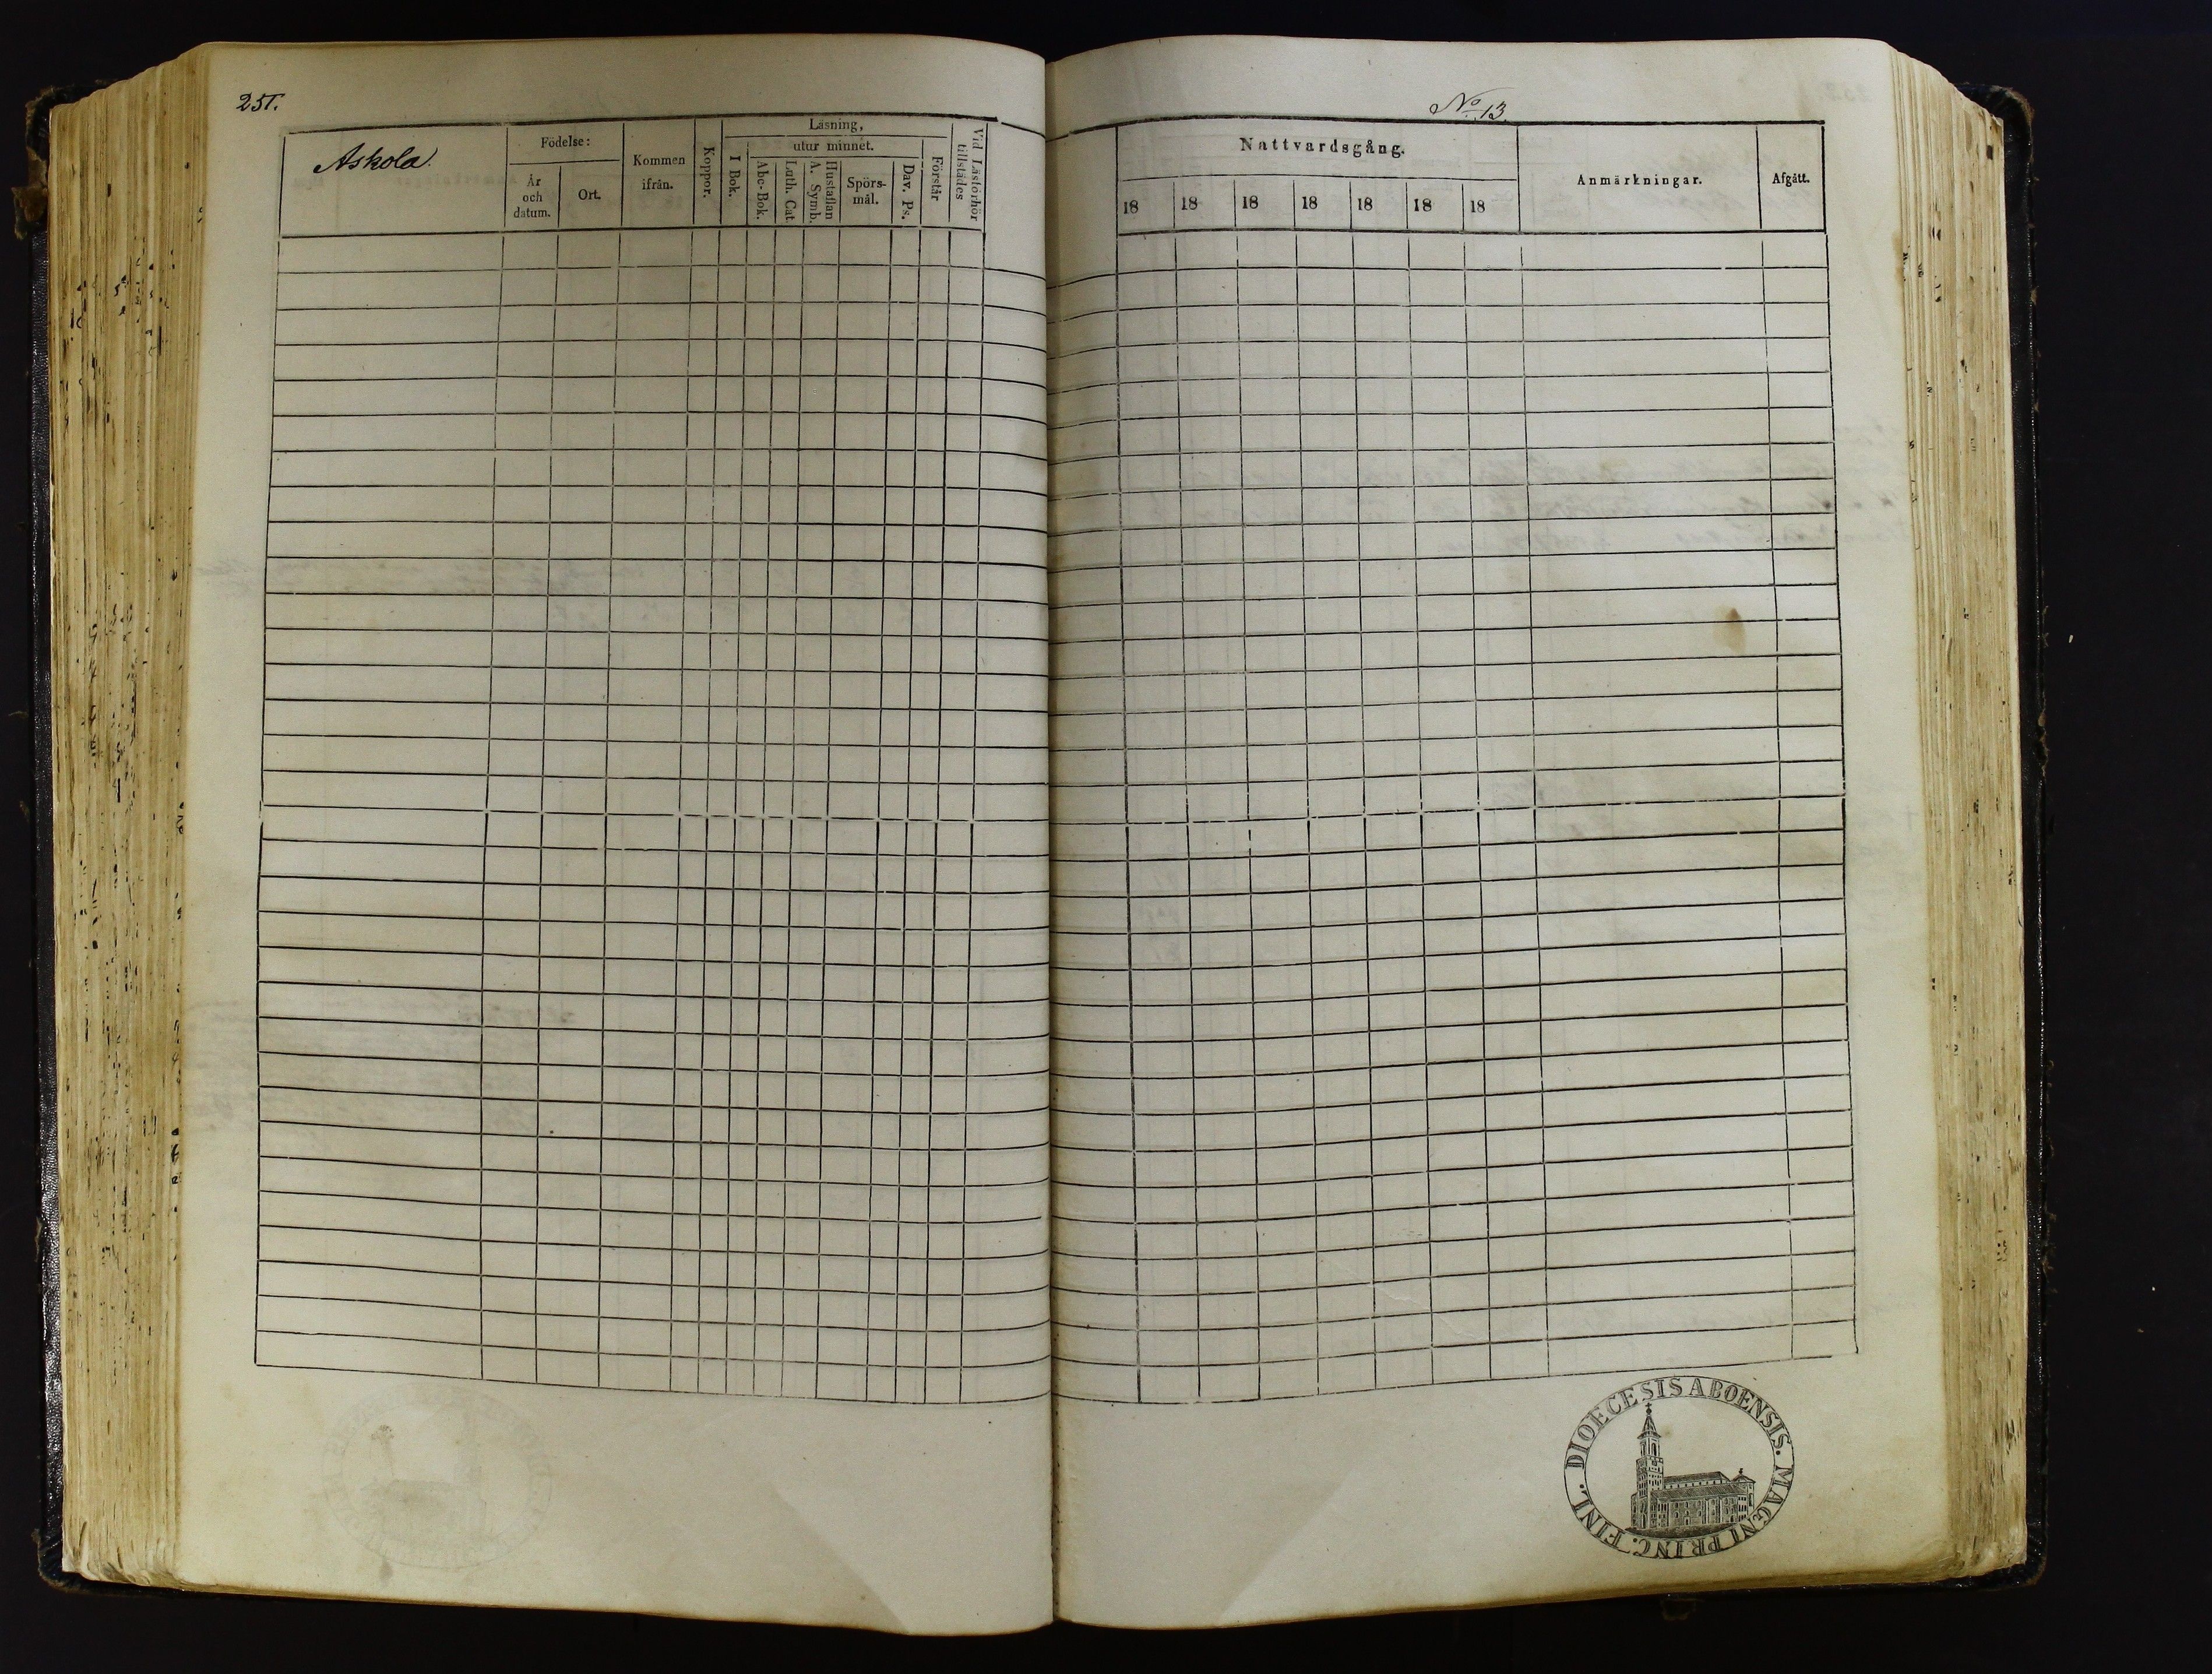 251.
Askola.
Födelse:
År och datum.
Ort.
Kommen ifrån.
Koppor.
Läsning,
I Bok.
utur minnet.
Abc-Bok.
Luth. Cat
Hustaflan A. Symb.
Spörs-mål.
Dav. Ps.
Förstår
Vid Läsförhör tillstädes
No 13.
Nattvardsgång.
18 18 18 18 18 18 18
Anmärkningar.
Afgått.
DIOECESIS ABOENSIS. MAGNI PRINC. FINL.